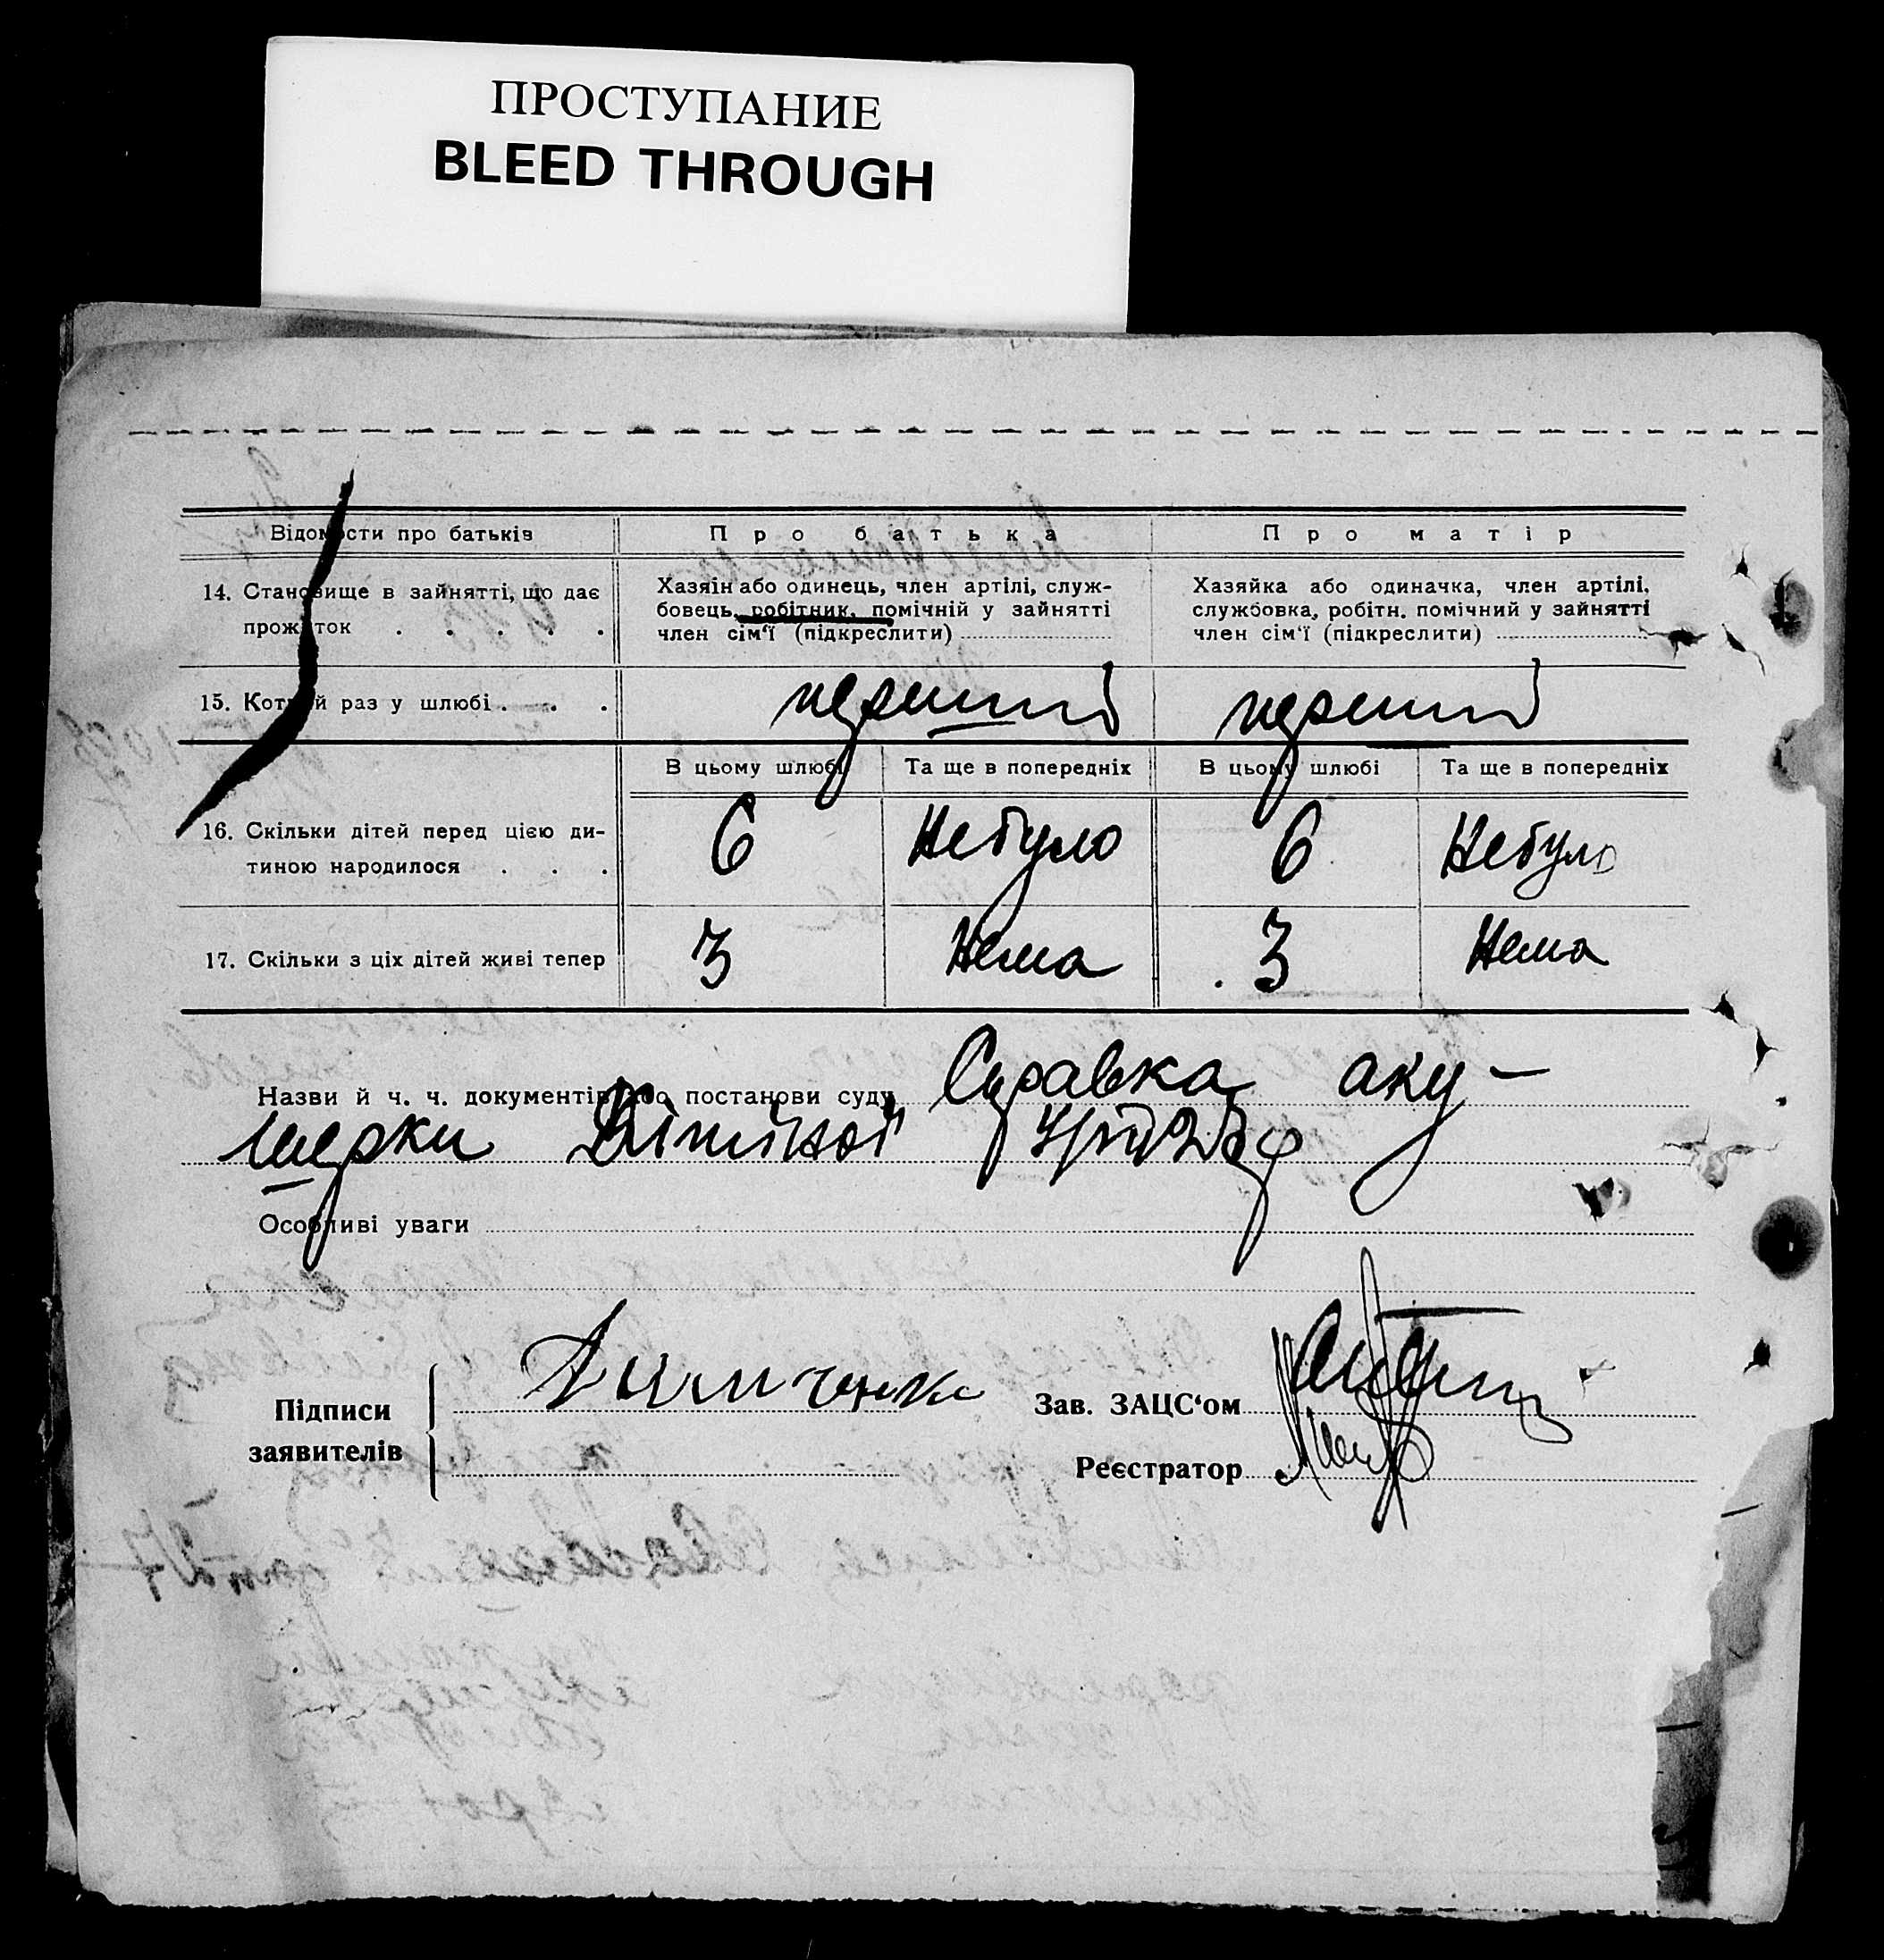 ПРОСТУПАНИЕ
BLEED THROUGH
Відомости про батьків
Про батька
Про матір
14. Становище в зайнятті, що дає
прожиток . . . . .
Хазяін або одинець, член артілі, служ-
бовець, робітник, помічній у зайнятті
член сім‘ї (підкреслити)
Хазяйка або одиначка, член артілі,
службовка, робітн. помічний у зайнятті
член сім‘ї (підкреслити)
15. Котрий раз у шлюбі . . .
перший
перший
В цьому шлюбі
Та ще в попередніх
В цьому шлюбі
Та ще в попередніх
16. Скільки дітей перед цією ди-
тиною народилося . . .
6
Небуло
6
Небуло
17. Скільки з ціх дітей живі тепер
3
Нема
3
Нема
Назви й ч. ч. документів або постанови суду Справка аку-
шерки
Особливі уваги
Підписи
заявителів
Зав. ЗАЦС‘ом
Реєстратор